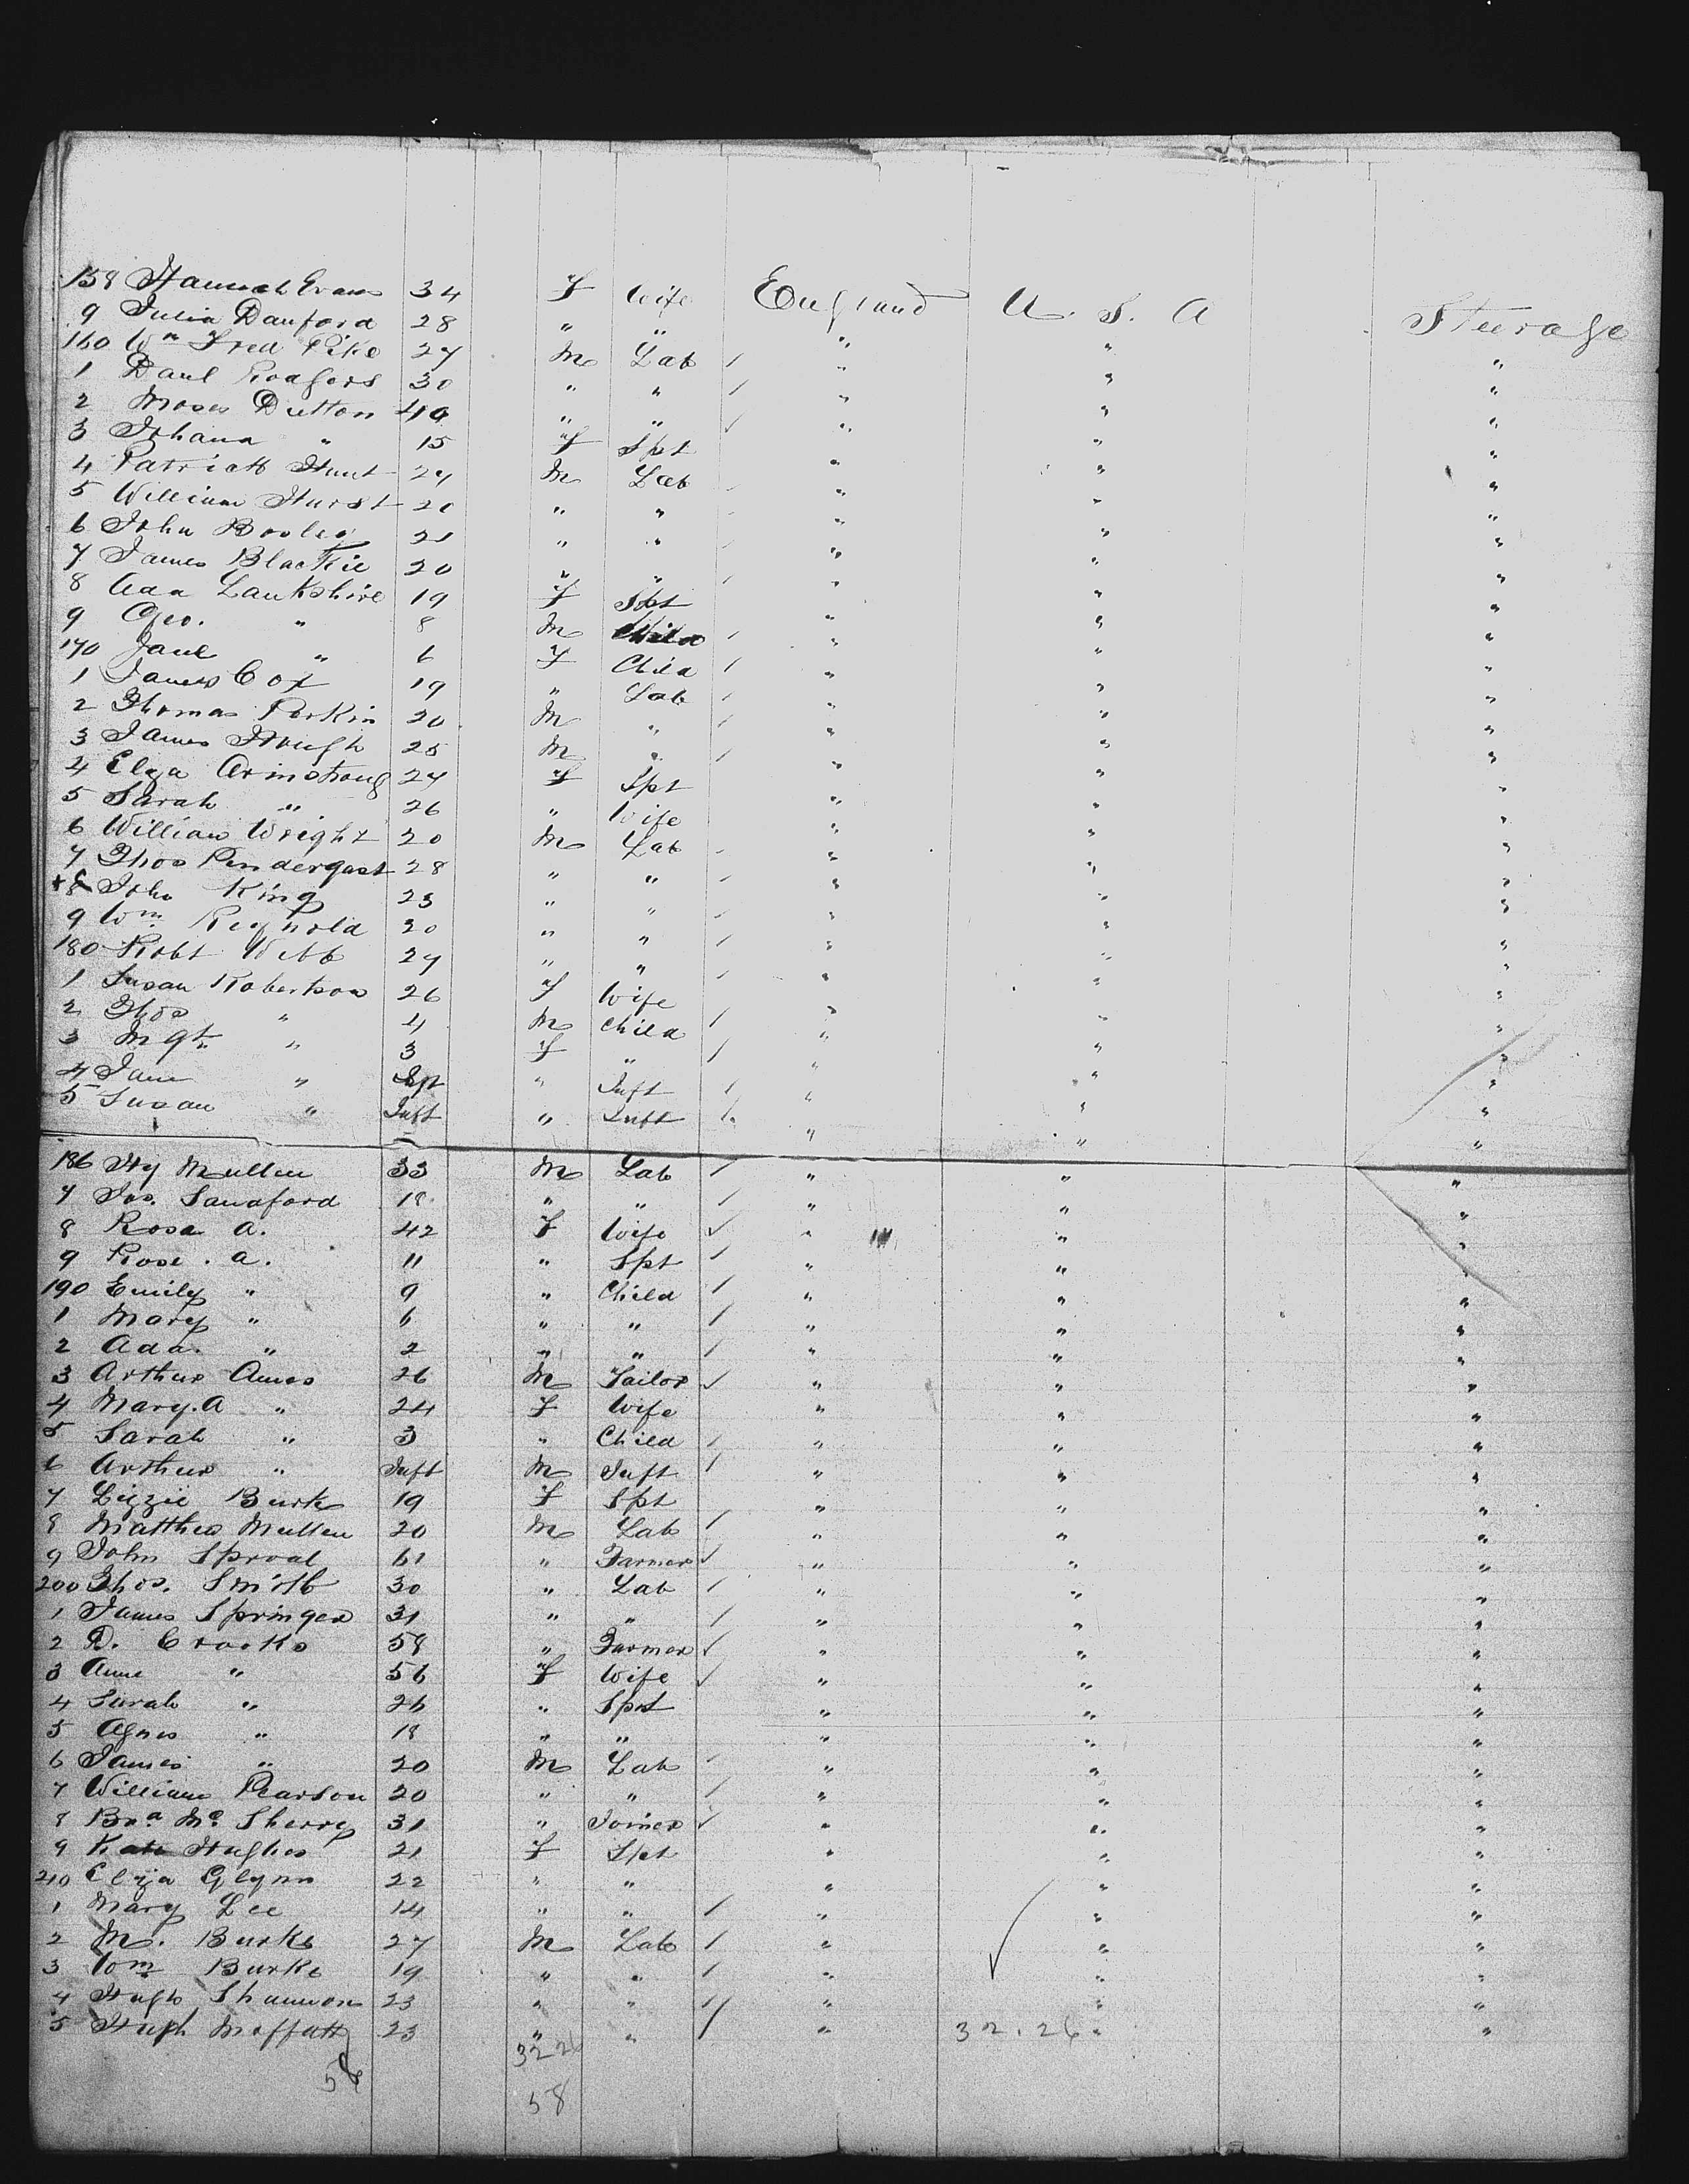 158 Hannah Evans 34 F Wife England U. S. A Steerage
9 Julia Danford 28 " " " "
160 Wm Fred Pike 27 M Lab " " "
1 Danl Rodgers 30 " " " " "
2 Moses Dutton 40 " " " " "
3 Johana " 15 F Spt " " "
4 Patrick Hunt 24 M Lab " " "
5 William Hurst 20 " " " " "
6 John 21 " " " " "
7 James Blackie 20 " " " " "
8 Ada Lankshire 19 F Spt " " "
9 Geo. " 8 M Child " " "
170 Jane " 6 F Child " " "
1 James Cox 19 " Lab " " "
2 Thomas Perkin 20 M " " " "
3 James Hough 25 M " " " "
4 Eliza Armstrong 27 F Spt " " "
5 Sarah " 26 " Wife " " "
6 William Wright 20 M Lab " " "
7 Thos Pendergast 28 " " " " "
+ 8 John King 23 " " " " "
9 Wm Reynold 20 " " " " "
180 Robt Webb 27 " " " " "
1 Susan Robertson 26 F Wife " " "
2 Thos " 4 M Child " " "
3 Mgt " 3 F " " " "
4 Jane " Inft " Inft " " "
5 Susan " Inft " Inft " " "
186 Hy Mullen 33 M Lab " " "
7 Jos. Sandford 18 " " " " "
8 Rosa A. 42 F Wife " " "
9 Rose . a. 11 " Spt " " "
190 Emily " 9 " Child " " "
1 Mary " 6 " " " " "
2 Ada " 2 " " " " "
3 Arthur Ames 26 M Tailor " " "
4 Mary. A " 24 F Wife " " "
5 Sarah " 3 " Child " " "
6 Arthur " Inft M Inft " " "
7 Lizzie Burk 19 F Spt " " "
8 Matthew Mullen 20 M Lab " " "
9 John Sproal 61 " Farmer " " "
200 Thos. Smith 30 " Lab " " "
1 James Springer 31 " " " " "
2 D. Crooks 58 " Farmer " " "
3 Anne " 56 F Wife " " "
4 Sarah " 26 " Spt " " "
5 Agnes " 18 " " " " "
6 James " 20 M Lab " " "
7 William Pearson 20 " " " " "
8 Mc Sherry 31 " Joiner " " "
9 Kate Hughes 21 F Spt " " "
210 Eliza Glynn 22 " " " " "
1 Mary Lee 14 " " " " "
2 M. Burke 27 M Lab " " "
3 Wm Burke 19 " " " " "
4 Hugh Shannon 23 " " " " "
5 Hugh Moffatt 23 " " " 32.26 " "
58 32 26
58